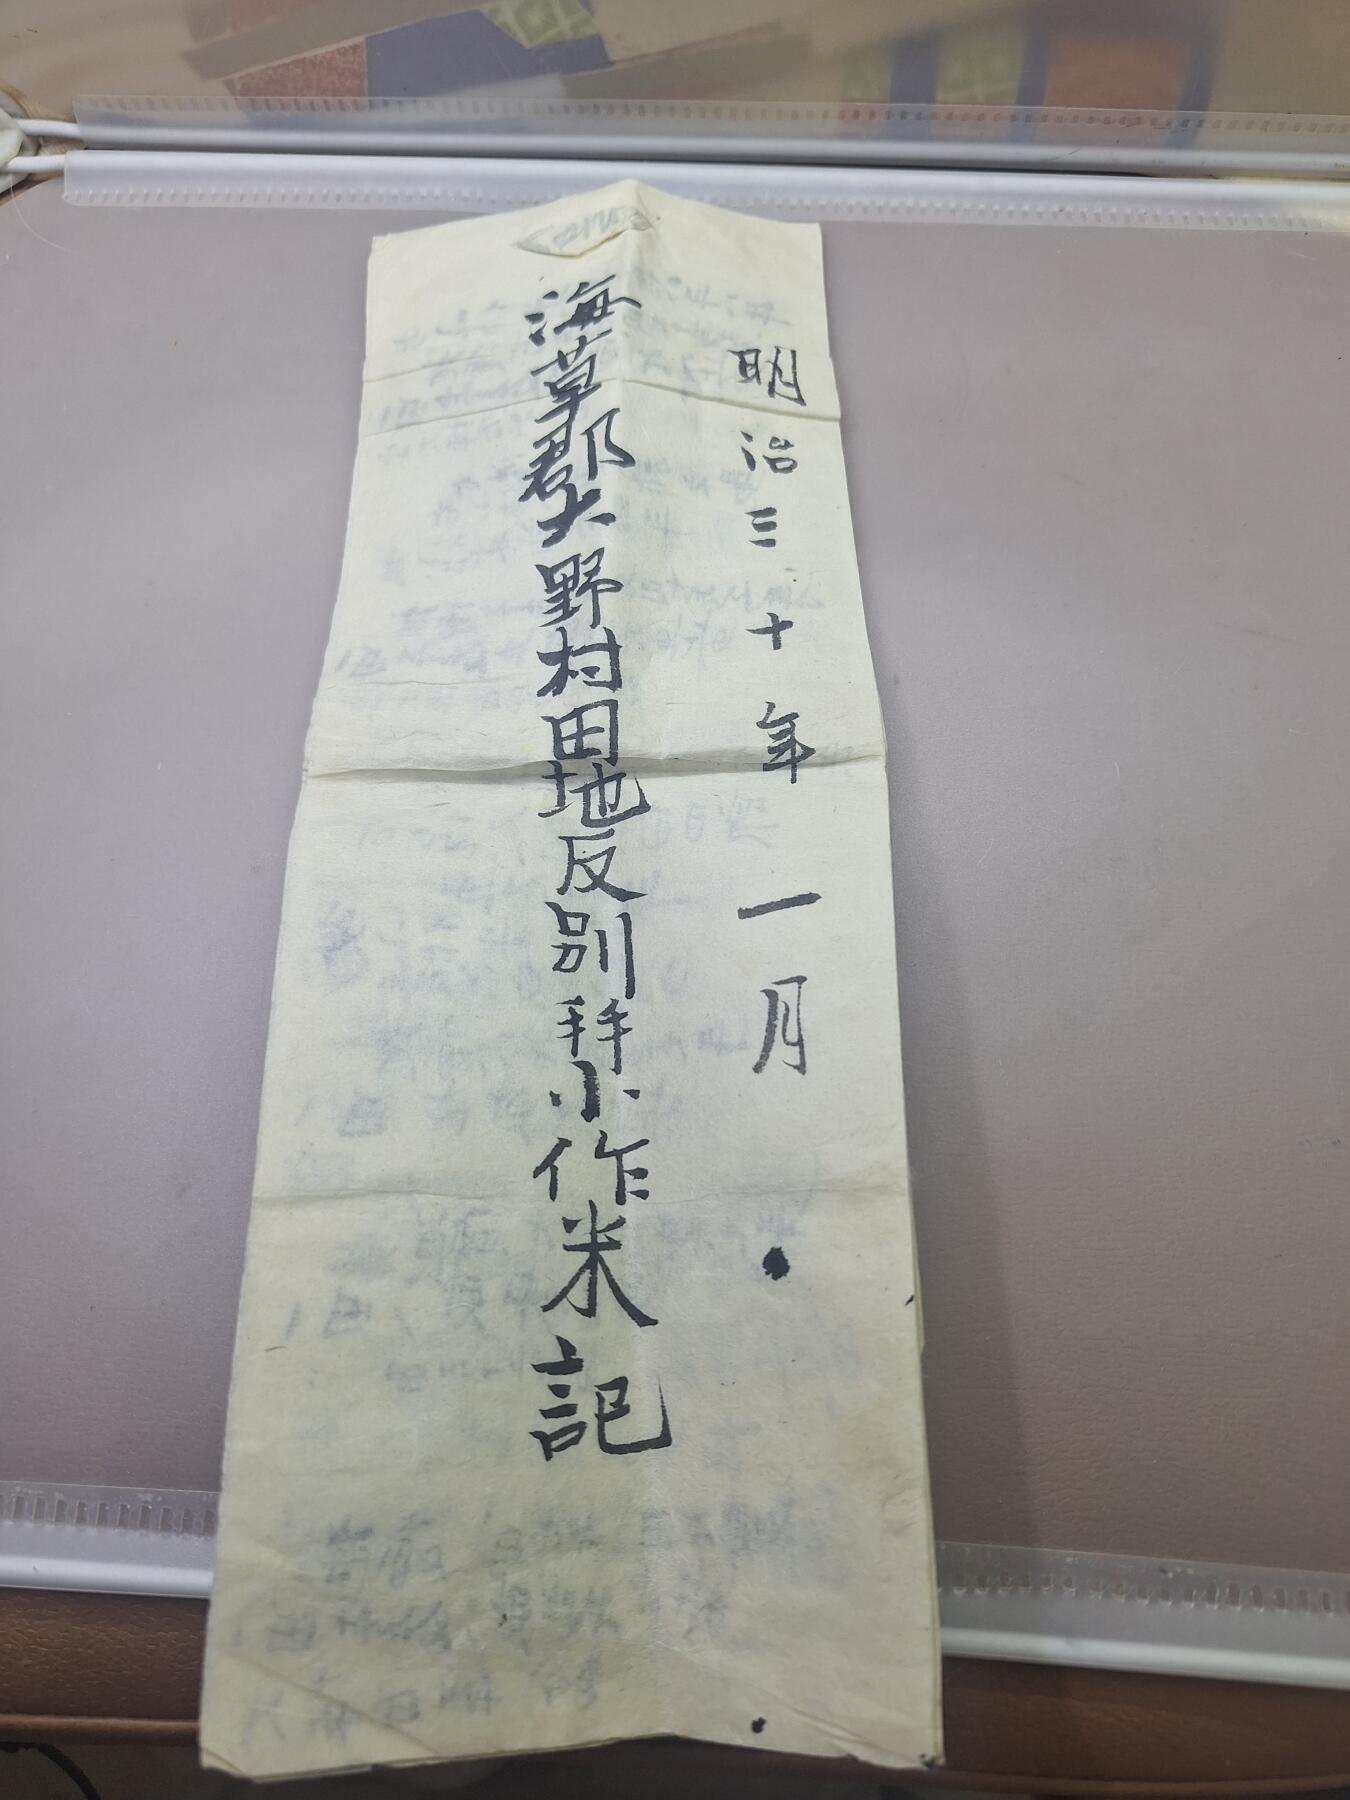 明治三十年一月
海草郡大野村田地反別幷小作米記